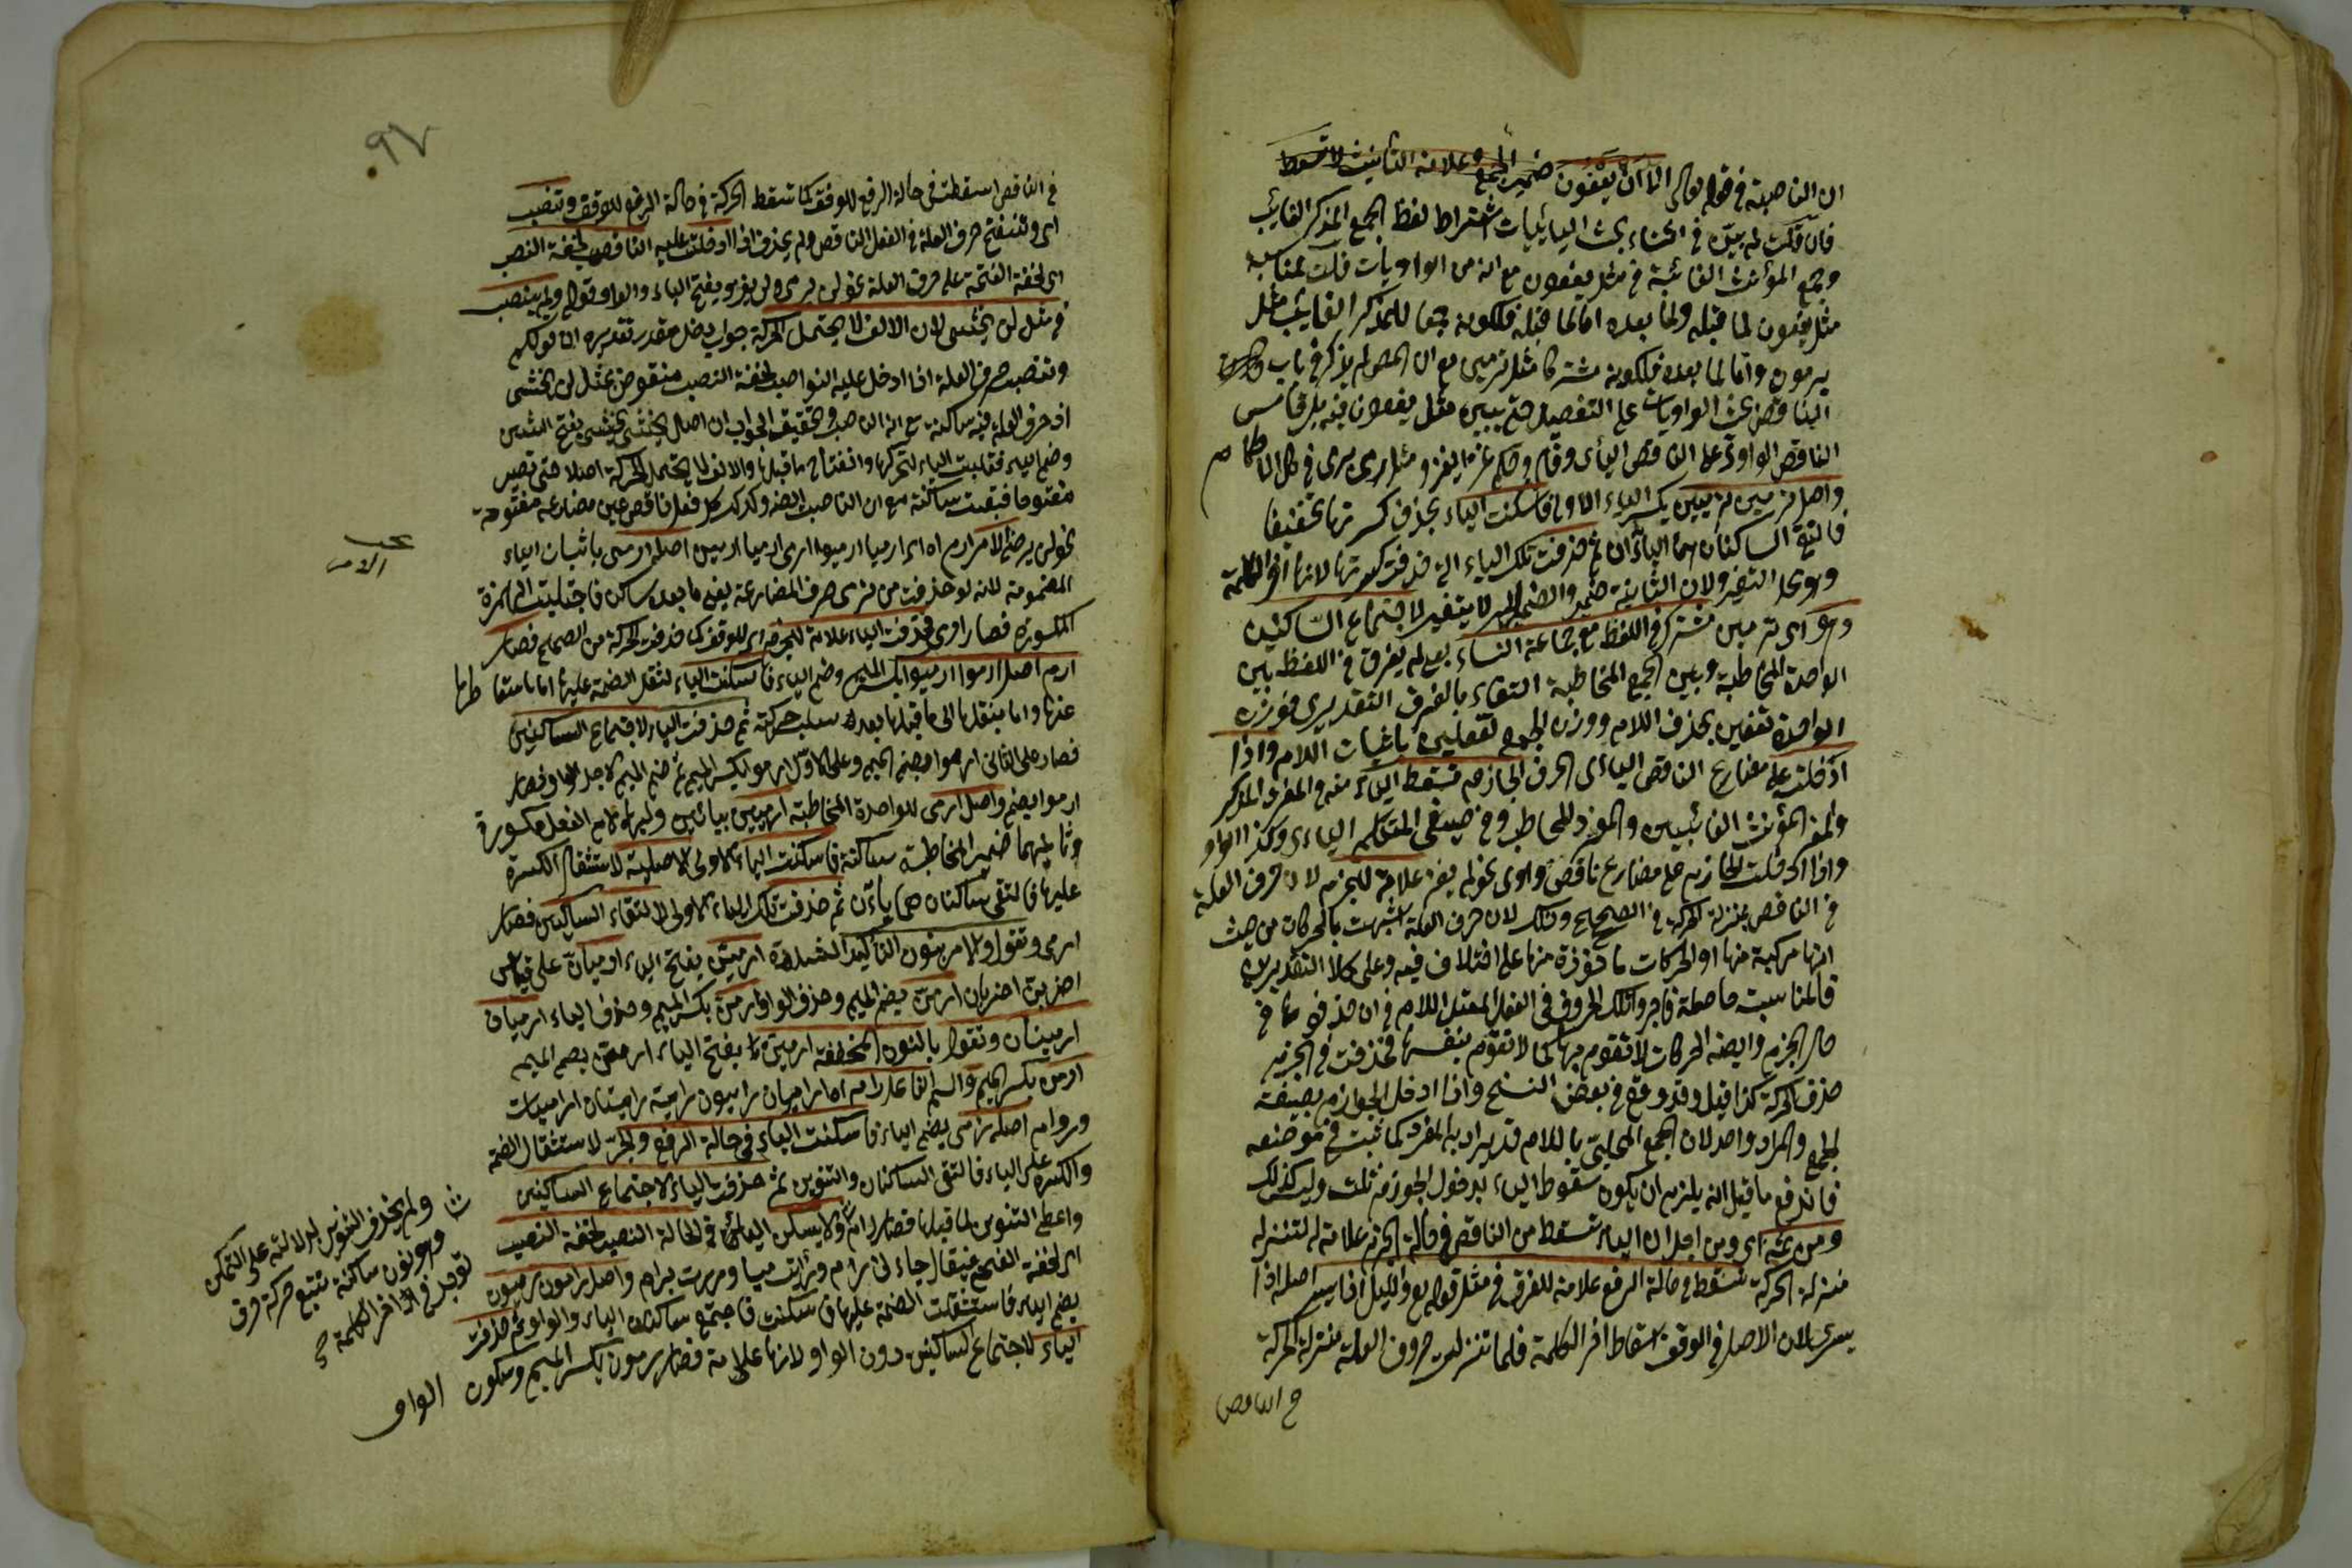 ان الناصبة في قوله تعالى الا ان يعفون ضمير الجمع وعلامة التأنيث لا تسقط
فان قلت لم بين في اثناء بحث اليائيات اشتراط لفظ الجمع المذكر الغايب
وجمع المؤنث الغائبة في مثل يعفون مع انه من الواويات قلت لمناسبة
مثل يعفون لما قبله ولما بعده اما لما قبله فلكونه جمعا للمذكر الغايب مثل
يرمون واما لما بعده فلكونه مشتركا مثل ترمين مع ان المص لم يذكر في باب
الناقص بحث الواويات على التفصيل حتى يبين مثل يعفون فيه بل قاس
الناقص الواوي على الناقص اليائي وقال وحكم غزا يغزو مثل رمى يرمي في كل الاحكام
واصل ترمين ترميين بكسر الياء الاولى فاسكنت الياء بحذف كسرتها تخفيفا
فالتقى الساكنان هما الياآن ثم حذفت تلك الياء التي حذفت كسرتها لانها آخر الكلمة
وهو محل التغير ولان الثانية ضمير والضمير لا يتغير لاجتماع الساكنين
وهو اي ترمين مشترك في اللفظ مع جماعة النساء يعني لم يفرق في اللفظ بين
الواحدة المخاطبة وبين الجمع المخاطبة اكتفاء بالفرق التقديري فوزن
الواحدة تفعين بحذف اللام ووزن الجمع تفعلين باثبات اللام واذا
ادخلت على مضارع الناقص اليائي الحرف الجازم تسقط الياء منه والمفرد المذكر
والمفرد المؤنث الغائبين والمفرد المخاطب وفي صيغتي المتكلم اليائي وكذا الواو
واذا ادخلت الجازم على مضارع ناقص واوي نحو لم يغز علامة للجزم لان حرف العلة
في الناقص بمنزلة الحركة في الصحيح وذلك لان حرف العلة اشبهت بالحركات من حيث
انها مركبة منها او الحركات ماخوذة منها على اختلاف فيه وعلى كلا التقديرين
فالمناسبة حاصلة فاجروا تلك الحروف في الفعل المعتل اللام في ان حذفوها في
حال الجزم وايضا الحركات لا تقوم بها كما لا تقوم بنفسها فحذفت في الجزم
حذف الحركة كذا قيل وقد وقع في بعض النسخ واذا ادخل الجوازم بصيغة
الجمع والمراد واحد لان الجمع المحلى باللام قد يراد به المفرد كما ثبت في موضعه
فاندفع ما قيل انه يلزم ان يكون سقوط الياء بدخول الجوازم ثلث وليس كذلك
ومن ثمة اي ومن اجل ان الياء تسقط من الناقص في حالة الجزم علامة له لتنزله
منزلة الحركة تسقط في حالة الرفع علامة للفرق في مثل قوله تع والليل اذا يسر اصله اذا
يسري لان الاصل في الوقف اسقاط آخر الكلمة فلما تنزلت حروف العلة منزلة الحركة
في الناقص
٩٧
في الناقص اسقطت في حالة الرفع للوقف كما تسقط الحركة في حالة الرفع للوقف وتنصب
اي وتنفتح حرف العلة في الفعل الناقص ولم يحذف اذا ادخلت عليه الناصب لخفة النصب
اي لخفة الفتحة على حرف العلة نحو لن يرمي ولن يغزو بفتح الياء والواو قوله ولم ينصب
في مثل لن يخشى لان الالف لا يحتمل الحركة جواب دخل مقدر تقديره ان قولكم
وتنصب حرف العلة اذا ادخل عليه النواصب لخفة النصب منقوض بمثل لن يخشى
اذ حرف العلة فيه ساكنة مع انه الناصب وتحقيق الجواب ان اصل يخشى يخشي بفتح الشين
وضم الياء فقلبت الياء لتحركها وانفتاح ما قبلها والالف لا يحتمل الحركة اصلا حتى تصير
مفتوحا فبقيت ساكنة مع ان الناصبة ايضه وكذلك كل فعل ناقص عين مضارعه مفتوحة
نحو لن يرضى الامر ارم اه اي ارميا ارموا ارمي ارميا ارمين اصله ارمي باثبات الياء
بحث
الامر
المضمومة لانه لو حذفت من ترمي حرف المضارعة بقي ما بعده ساكن فاجتلبت الهمزة
المكسورة فصار ارمي فحذفت الياء علامة للجزم اي للوقف كما حذفت الحركة من الصحيح فصار
ارم اصل ارموا ارميوا بكسر الميم وضم الياء فاسكنت الياء لثقل الضمة عليها اما باسقاطها
عنها واما بنقلها الى ما قبلها بعد سلب حركته ثم حذفت الياء لاجتماع الساكنين
فصار على الثاني ارموا بضم الميم وعلى الاول ارموا بكسر الميم ثم ضم الميم لاجل الواو فصار
ارموا بضم واصل ارمي للواحدة المخاطبة ارميي بيائين اوليهما لام الفعل مكسورة
وثانيهما ضمير المخاطبة ساكنة فاسكنت الياء الاولى الاصلية لاستثقال الكسرة
عليها فالتقى ساكنان هما ياآن ثم حذفت تلك الياء الاولى لالتقاء الساكنين فصار
ارمي وتقول والامر بنون التأكيد المشددة ارمين بفتح الياء ارميان على قياس
اضربن اضربان ارمن بضم الميم وحذف الواو ارمن بكسر الميم وحذف الياء ارميان
ارمينان وتقول بالنون المخففة ارمين بفتح الياء ارمن بضم الميم
ارمن بكسر الميم واسم الفاعل رام اه راميان راميون رامية راميتان راميات
وروام اصله رامي بضم الياء فاسكنت الياء في حالة الرفع والجر لاستثقال الضمة
والكسرة على الياء فالتقى الساكنان والتنوين ثم حذفت الياء لاجتماع الساكنين
واعطي التنوين لما قبلها فصار رام ولا يسكن الياء في حالة النصب لخفة النصب
اي لخفة الفتحة فيقال جاءني رام ورأيت راميا ومررت برام واصل رامون راميون
بضم الياء فاستثقلت الضمة عليها فاسكنت فاجتمع ساكنان الياء والواو ثم حذفت
الياء لاجتماع الساكنين دون الواو لانها علامة فصار رامون بكسر الميم وسكون الواو
ولم يحذف التنوين لدلالته على التمكن
وهو نون ساكنة تتبع حركة حرف
توجد في آخر الكلمة